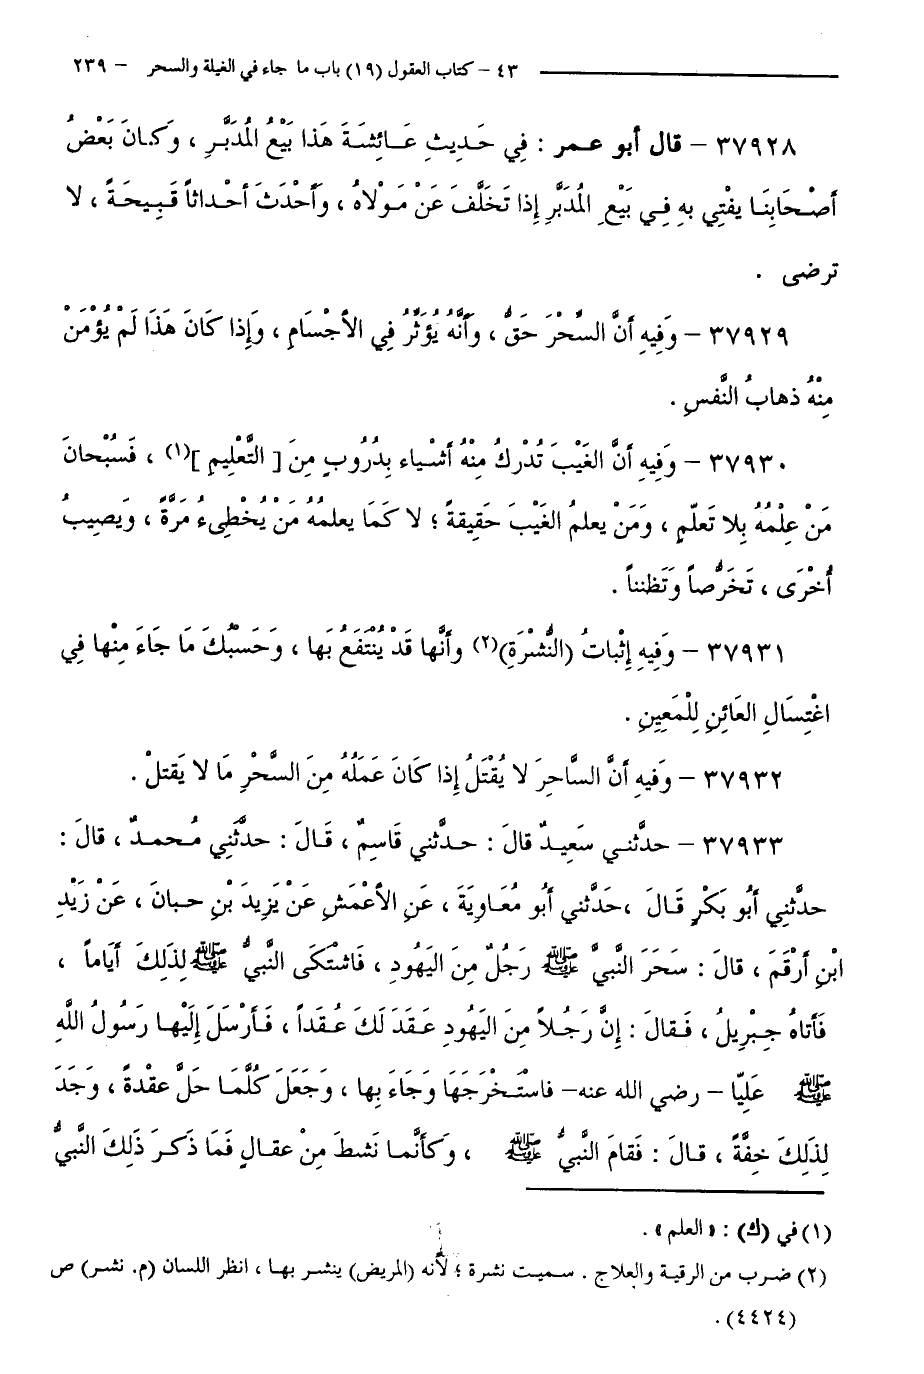 ٤٣ – كتاب العقول (١٩) باب ما جاء في الغيلة والسحر – ٢٣٩
٣٧٩٢٨ – قال أبو عمر : فِي حَدِيثِ عَائِشَةَ هَذَا بَيْعُ الْمُدَبَّرِ ، وَكَانَ بَعْضُ
أصْحَابِنَا يفْتِي بهِ فِي بَيْعِ المُدَبَّرِ إِذا تَخَلَّفَ عَنْ مَوْلاهُ ، وأَحْدَثَ أحْداثاً قَبِيحَةً ، لا
ترضى .
٣٧٩٢٩ – وَفِيهِ أنَّ السِّحْرَ حَقٌّ ، وأنَّهُ يُؤَثِّرُ فِي الأجْسَامِ ، وَإِذا كَانَ هَذَا لَمْ يُؤْمَنْ
مِنْهُ ذهابُ النَّفسِ .
٣٧٩٣٠ – وَفِيهِ أنَّ الغَيْبَ تُدْرِكُ مِنْهُ أشْياء بِدُرُوبٍ مِنَ [ التَّعْلِيمِ ](١) ، فَسُبْحانَ
مَنْ عِلْمُهُ بِلا تَعلّمٍ ، وَمَنْ يعلمُ الغَيْبَ حَقِيقةً ؛ لا كَمَا يعلمهُ مَنْ يُخْطِيءُ مَرَّةً ، وَيصِيبُ
أُخْرَى ، تَخَرُّصاً وَتَظنناً .
٣٧٩٣١ – وَفِيهِ إِثْباتُ (النُّشْرَةِ)(٢) وأنَّها قَدْ يُنْتَفَعُ بَها ، وَحَسْبُكَ مَا جَاءَ مِنْها فِي
اغْتِسَالِ العَائِنِ لِلْمَعِينِ .
٣٧٩٣٢ – وَفِيهِ أنَّ السَّاحِرَ لا يُقْتَلُ إِذا كَانَ عَمَلُهُ مِنَ السِّحْرِ مَا لا يَقتلْ .
٣٧٩٣٣ – حدَّثنِي سَعِيدٌ قالَ : حدَّثنِي قَاسِمٌ ، قَالَ : حدَّثَنِي مُحمدٌ ، قالَ :
حدَّثنِي أَبُو بَكْرٍ قَالَ ،حَدَّثنِي أبُو مُعَاوِيَةَ ، عَنِ الأعْمَشِ عَنْ يَزِيدَ بْنِ حبانَ ، عَنْ زَيْدِ
ابْنِ أرْقَمَ ، قالَ : سَحَرَ النَّبِيَّ ﷺ رَجُلٌ مِنَ اليَهُودِ ، فَاشْتَكَى النَّبِيُّ ﷺ لِذَلِكَ أيَاماً ،
فَأتاهُ جِبْرِيلُ ، فَقالَ : إِنَّ رَجُلاً مِنَ اليَهُودِ عَقَدَ لَكَ عُقَداً ، فَأرْسَلَ إِلَيْها رَسُولُ اللَّهِ
ﷺ عَلِيّا – رضي الله عنه– فاسْتَخْرَجَهَا وَجَاءَ بِها ، وَجَعَلَ كُلَّمَا حَلَّ عقْدةً ، وَجَدَ
لِذَلِكَ خِفَّةً ، قالَ : فَقامَ النَّبِيُّ ﷺ ، وَكأنَّما نَشطَ مِنْ عقالٍ فَمَا ذَكَرَ ذَلِكَ النَّبِيُّ
(١) في (ك) : «العلم» .
(٢) ضرب من الرقية والعلاج . سميت نشرة ؛ لأنه (المريض) ينشر بها ، انظر اللسان (م. نشر) ص
(٤٤٢٤).